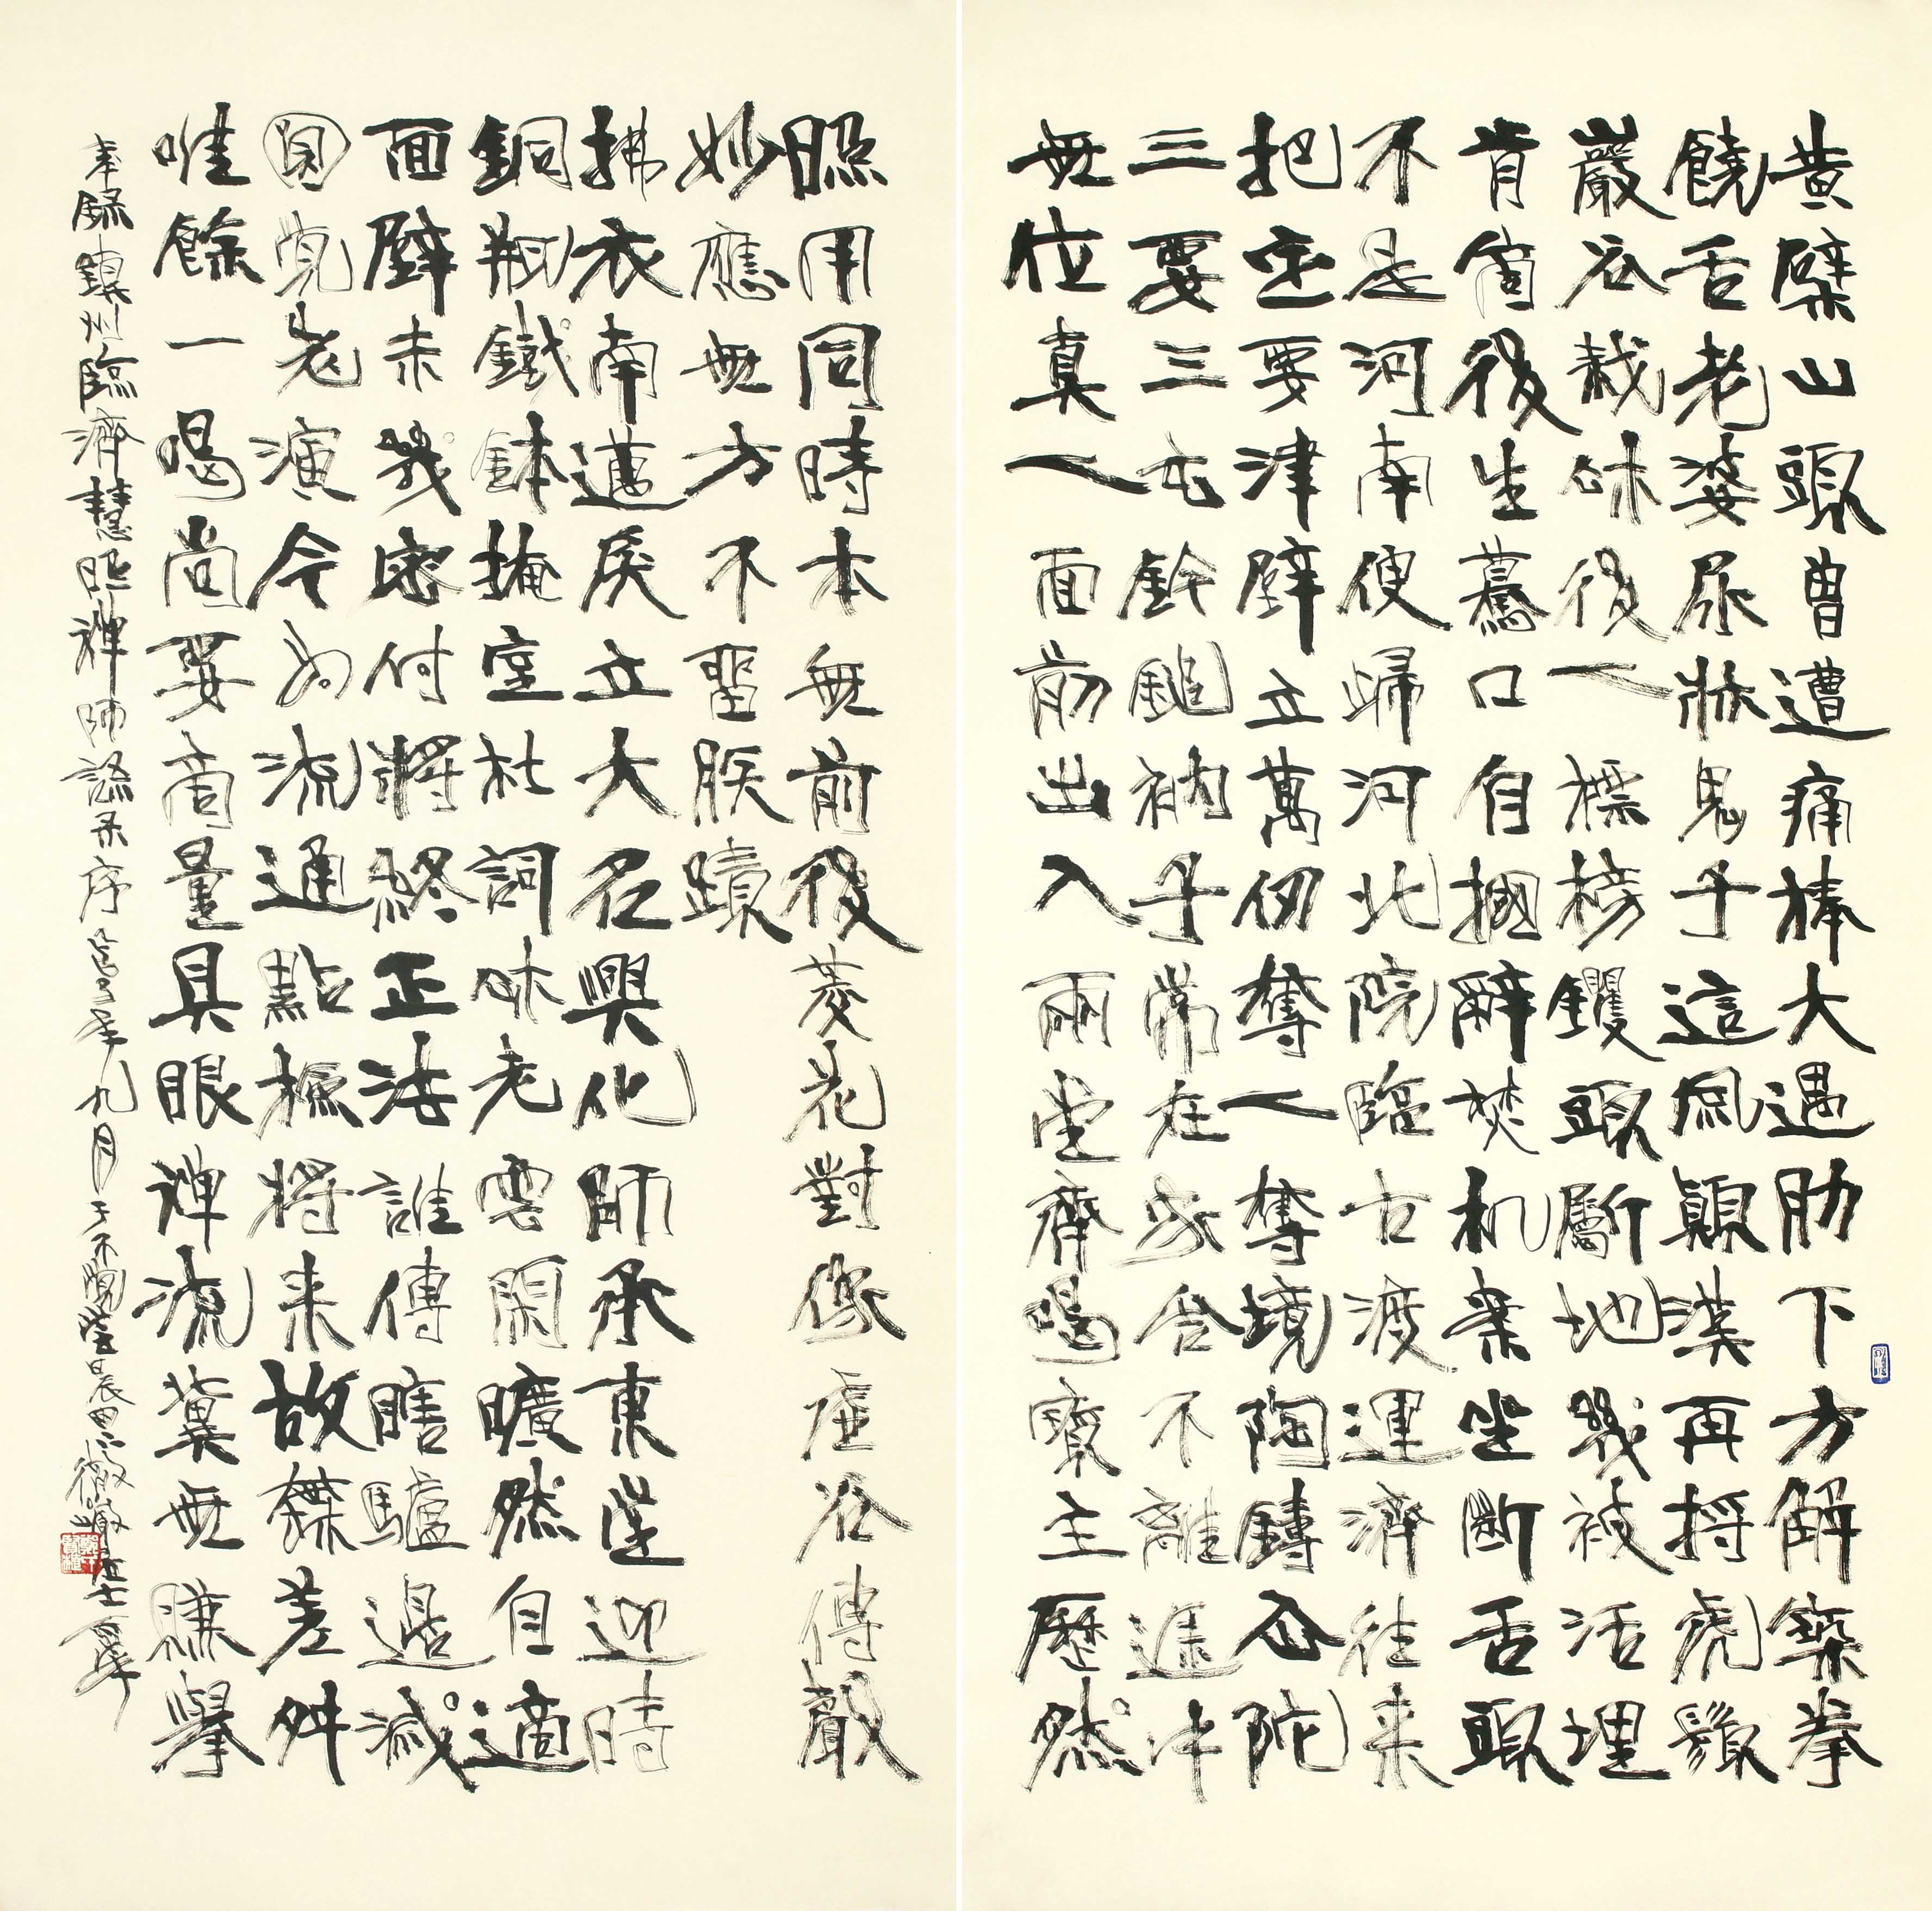 黃檗山頭曾遭痛棒大遇肋下方解築拳
饒舌老婆尿牀鬼子這風顛漢再捋虎鬚
巖谷栽松後人標榜钁頭斸地幾被活埋
肯箇後生驀口自摑辭焚机案坐斷舌頭
不是河南便歸河北院臨古渡運濟往来
把定要津壁立萬仞奪人奪境陶鑄仝陀
三要三玄鈐鎚衲子常在家舍不離途中
無位真人面前出入兩堂齊喝賓主歷然
照用同時本無前後菱花對像虛谷傳聲
妙應無方不留朕蹟
拂衣南邁戾立大名興化師承東堂迎時
銅瓶鐵鉢掩室杜詞松老雲閑曠然自適
面壁未幾密付將終正法誰傳瞎驢邊滅
圓覺老演今為流通點撿將来故無差舛
唯餘一喝尚要商量具眼禪流冀無賺舉
奉錄鎮州臨濟慧照禪師語錄序